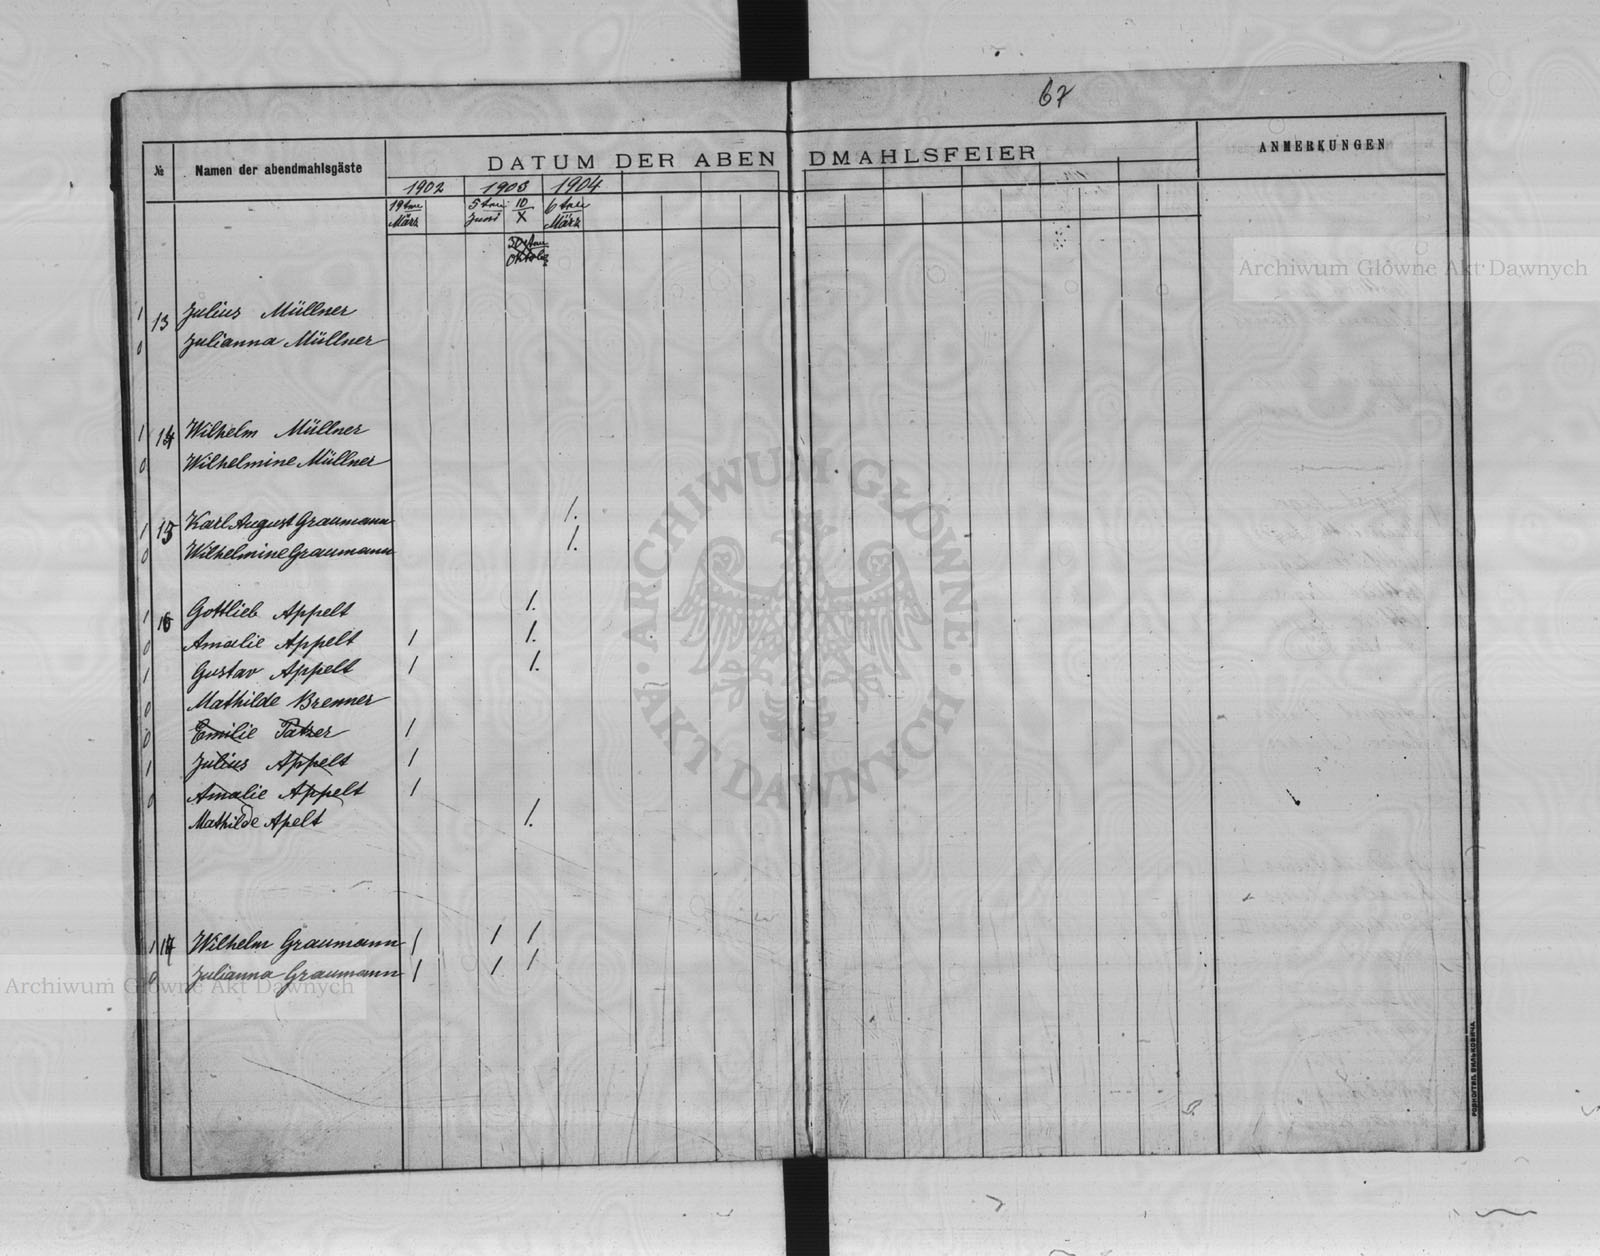 67
№ Namen der abendmahlsgäste DATUM DER ABENDMAHLSFEIER ANMERKUNGEN
1902 1903 1904
19ten März 5ten Juni 10/X 6ten März
Oktober
1 13 Julius Müllner
0 Julianna Müllner
1 14 Wilhelm Müllner
0 Wilhelmine Müllner
1 15 Karl August Graumann 1.
0 Wilhelmine Graumann 1.
1 16 Gottlieb Appelt 1.
0 Amalie Appelt 1 1.
1 Gustav Appelt 1 1.
0 Mathilde Brenner
0 Emilie Tatzer 1
1 Julius Appelt 1
0 Amalie Appelt 1
Mathilde Apelt 1.
1 17 Wilhelm Graumann 1 1 1
0 Julianna Graumann 1 1 1
Archiwum Główne Akt Dawnych
Archiwum Główne Akt Dawnych
ARCHIWUM GŁÓWNE · AKT DAWNYCH ·